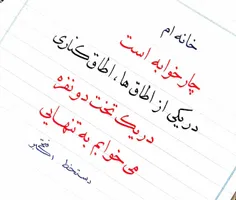 خانه ام
چارخوابه است
در یکی از اطاق ها، اطاق کناری
در یک تخت دو نفره
می خوابم به تنهایی
دستخط